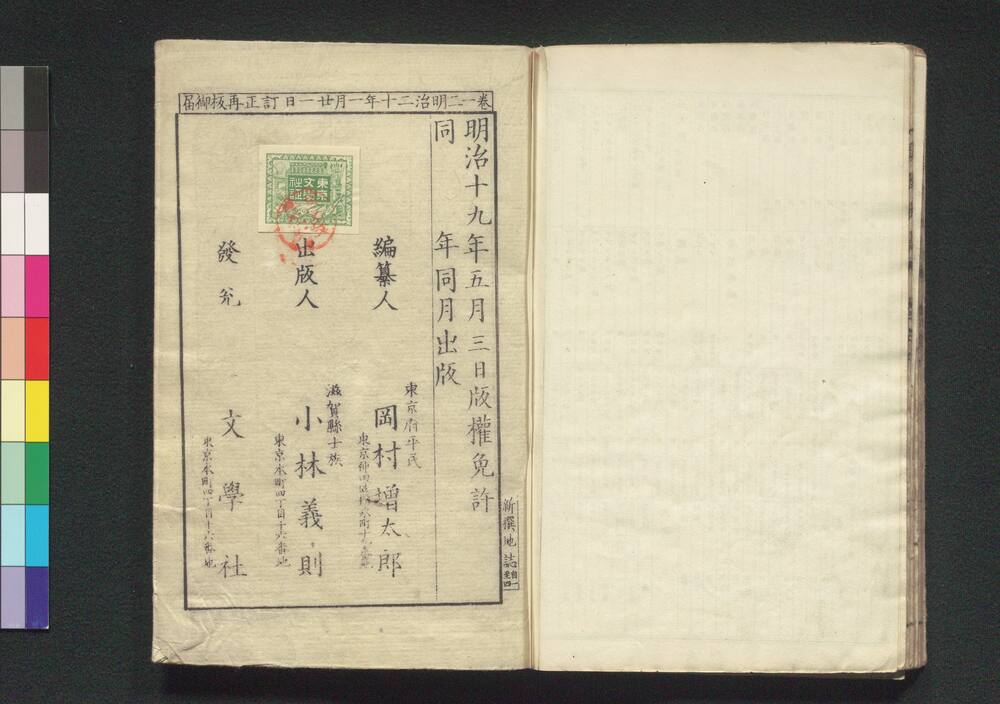 卷一二明治二十年一月廿一日訂正再板御届
明治十九年五月三日版權免許
同年同月出版
編纂人
東京府平民
岡村增太郎
出版人
滋賀縣士族
小林義則
東京本町四丁目十六番地
發兌
文學社
東京本町四丁目十六番地
東京
文學
社証
新撰地誌
自一
至四